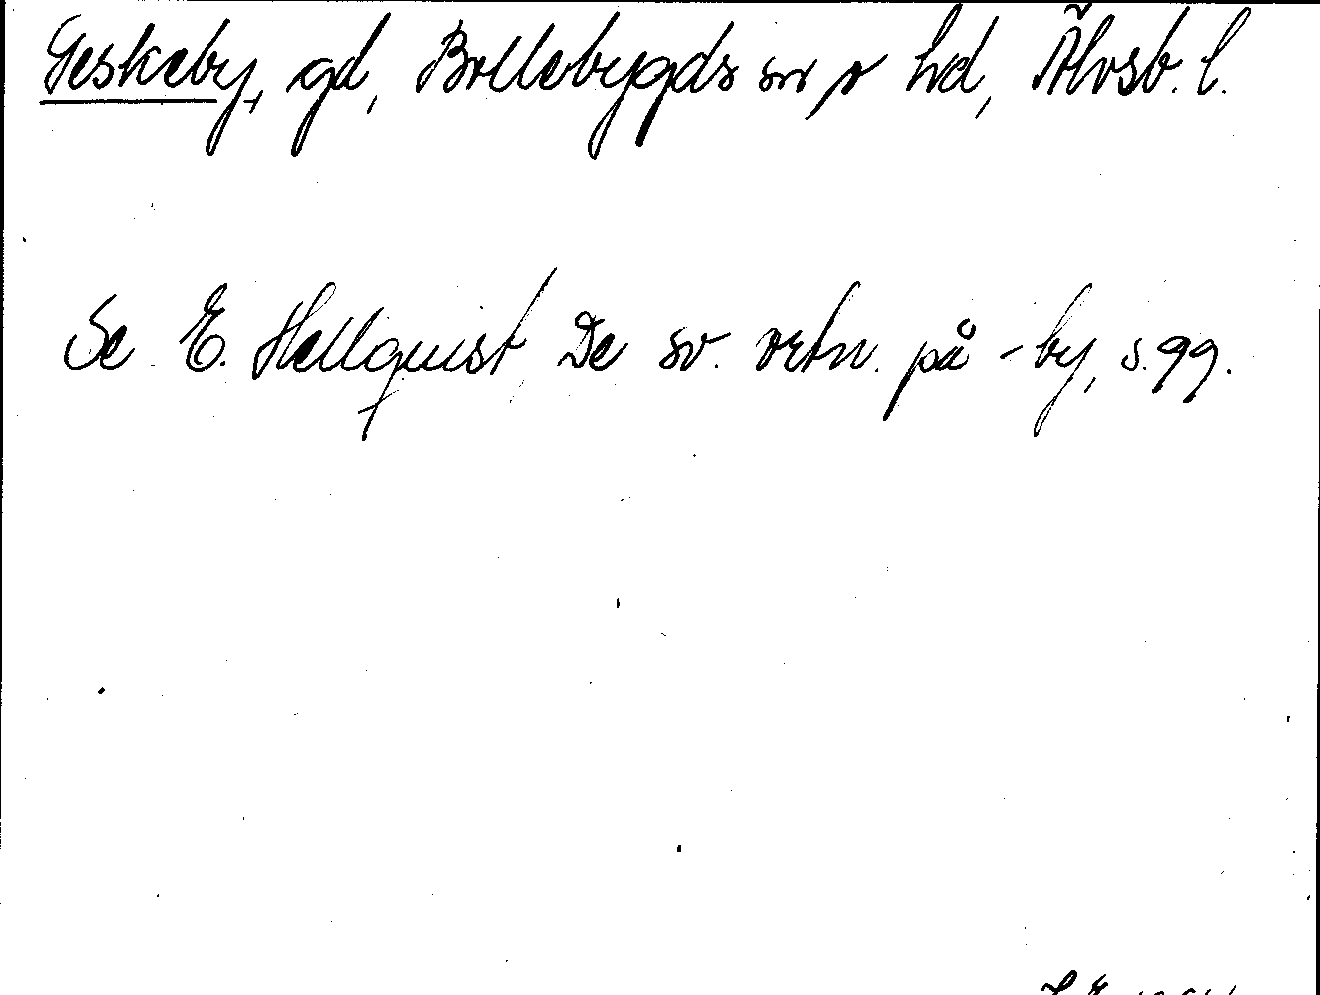 Geskeby, gd, Bollebygds sn o hd, Älvsb. l.
Se E. Hellquist De sv. ortn. på -by, s. 99.